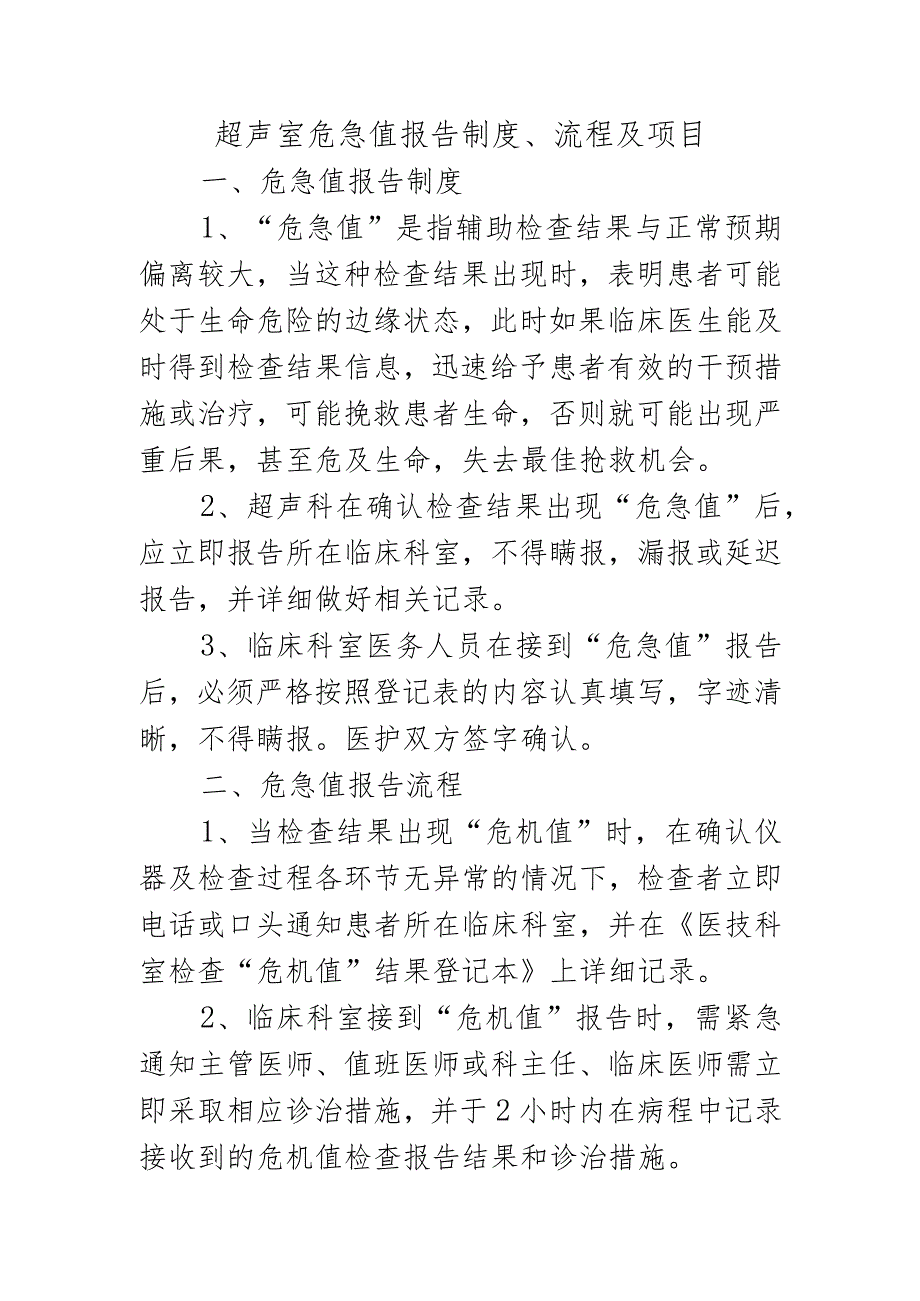 超声室危急值报告制度、流程及项目
一、危急值报告制度
1、“危急值”是指辅助检查结果与正常预期
偏离较大，当这种检查结果出现时，表明患者可能
处于生命危险的边缘状态，此时如果临床医生能及
时得到检查结果信息，迅速给予患者有效的干预措
施或治疗，可能挽救患者生命，否则就可能出现严
重后果，甚至危及生命，失去最佳抢救机会。
2、超声科在确认检查结果出现“危急值”后，
应立即报告所在临床科室，不得瞒报，漏报或延迟
报告，并详细做好相关记录。
3、临床科室医务人员在接到“危急值”报告
后，必须严格按照登记表的内容认真填写，字迹清
晰，不得瞒报。医护双方签字确认。
二、危急值报告流程
1、当检查结果出现“危机值”时，在确认仪
器及检查过程各环节无异常的情况下，检查者立即
电话或口头通知患者所在临床科室，并在《医技科
室检查“危机值”结果登记本》上详细记录。
2、临床科室接到“危机值”报告时，需紧急
通知主管医师、值班医师或科主任、临床医师需立
即采取相应诊治措施，并于2小时内在病程中记录
接收到的危机值检查报告结果和诊治措施。